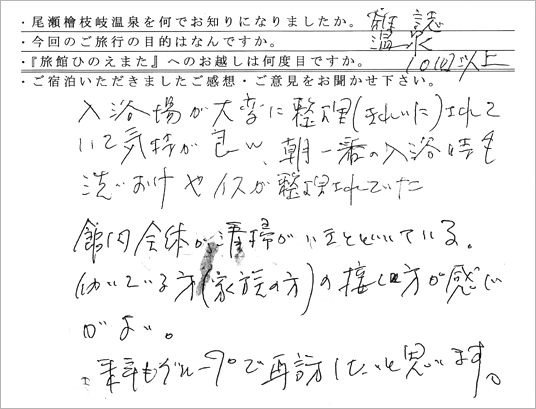 ・尾瀬檜枝岐温泉を何でお知りになりましたか。 雑誌
・今回のご旅行の目的はなんですか。 温泉
・『旅館ひのえまた』へのお越しは何度目ですか。 10回以上
・ご宿泊いただきましたご感想・ご意見をお聞かせ下さい。
入浴場が大変に整理(きれいに)されて
いて気持が良い、朝一番の入浴時も
洗いおけやイスが整理されていた
館内全体が清掃がいきとどいている。
働いている方(家族の方)の接し方が感じ
がよい。
来年もグループで再訪したいと思います。